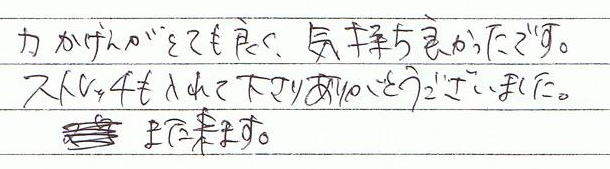 力かげんがとても良く、気持ち良かったです。
ストレッチも入れて下さりありがとうございました。
また来ます。